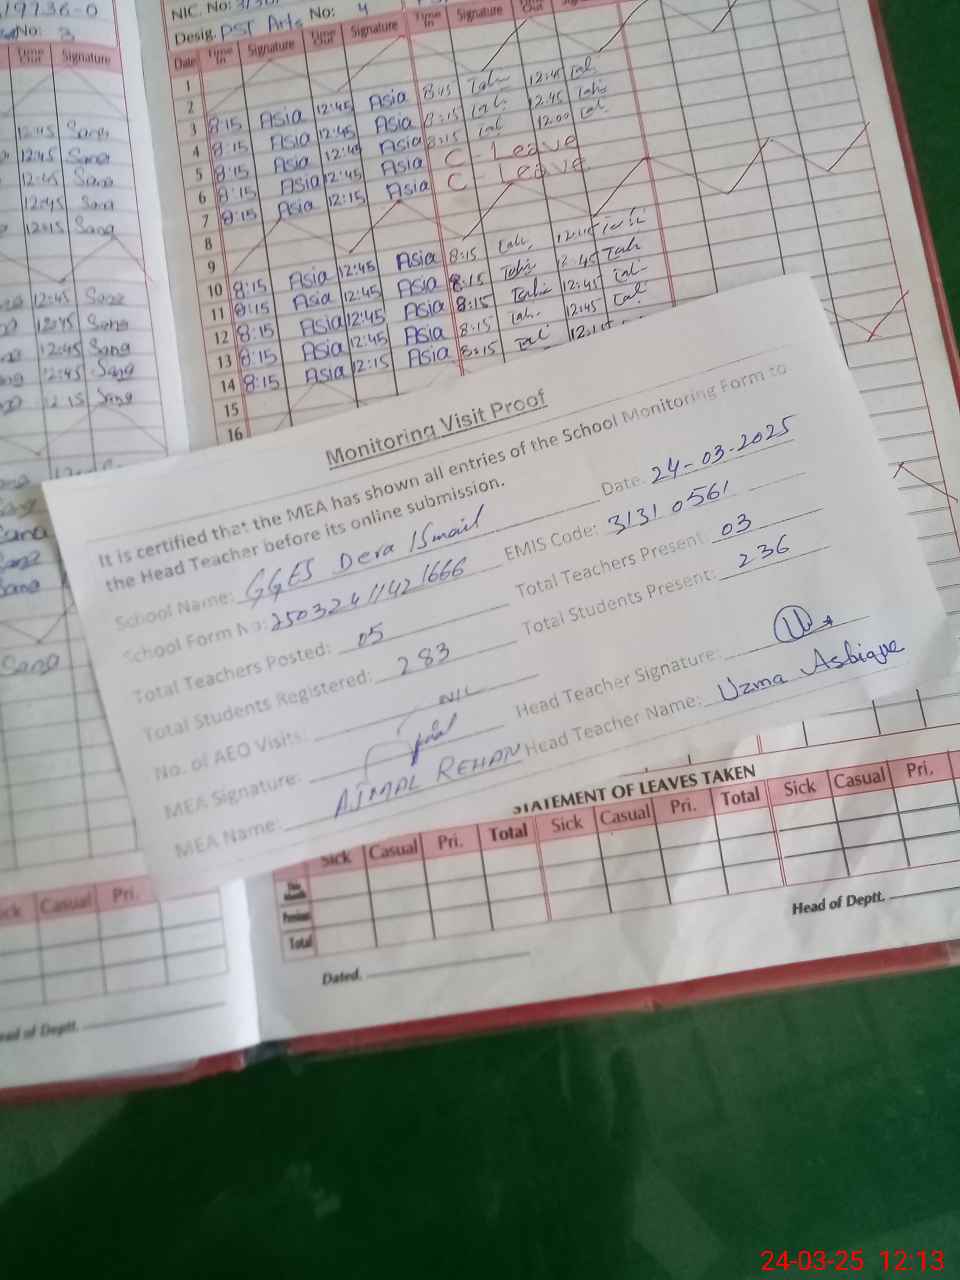 19736-0
No: 3
Time Out Signature
12:45 Sana
12:45 Sana
12:45 Sana
12:45 Sana
12:15 Sana
12:45 Sana
12:45 Sana
12:45 Sana
12:45 Sana
12:15 Sana
Sana
Sana
Sana
Sana
Sick Casual Pri.
Head of Deptt.
NIC. No:
Desig. PST Arts No: 4
Date Time In Signature Time Out Signature Time In Signature Out
1
2
3 8:15 Asia 12:45 Asia 8:15 12:45
4 8:15 Asia 12:45 Asia 8:15 12:45
5 8:15 Asia 12:45 Asia 8:15 12:00
6 8:15 Asia 12:45 Asia C - Leave
7 8:15 Asia 12:15 Asia C - Leave
8
9
10 8:15 Asia 12:45 Asia 8:15
11 8:15 Asia 12:45 Asia 8:15 12:45
12 8:15 Asia 12:45 Asia 8:15 12:45
13 8:15 Asia 12:45 Asia 8:15 12:45
14 8:15 Asia 12:15 Asia 8:15
15
16
Monitoring Visit Proof
It is certified that the MEA has shown all entries of the School Monitoring Form to
the Head Teacher before its online submission.
Date: 24-03-2025
School Name: GGES Dera ISmail
EMIS Code: 31310561
School Form No: 25032411421666
Total Teachers Present: 03
Total Teachers Posted: 05
Total Students Present: 236
Total Students Registered: 283
No. of AEO Visits: NIL
Head Teacher Signature:
MEA Signature:
Head Teacher Name: Uzma Ashique
MEA Name: AJMAL REHAN
STATEMENT OF LEAVES TAKEN
Sick Casual Pri. Total Sick Casual Pri. Total Sick Casual Pri.
This Month
Previous
Total
Head of Deptt.
Dated.
24-03-25 12:13